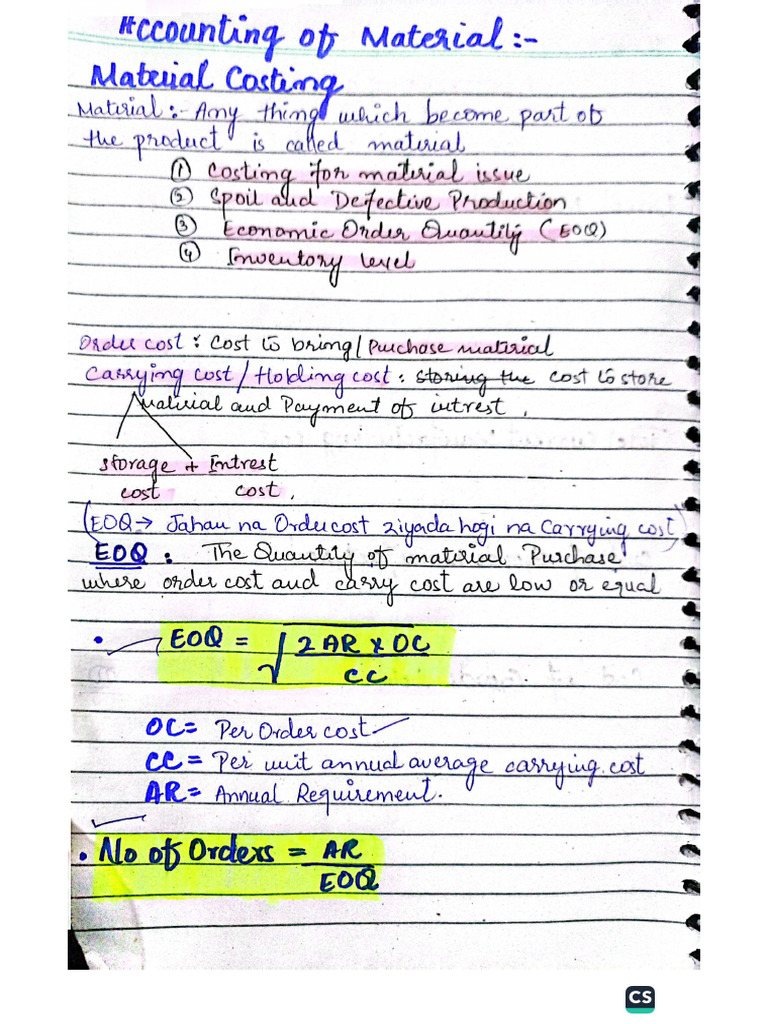 Accounting of Material:-
Material Costing
Material:- Any thing which become part of
the product is called material
① Costing for material issue
② Spoil and Defective Production
③ Economic Order Quantity (EOQ)
④ Inventory level
Order cost: Cost to bring/Purchase material
Carrying cost/Holding cost: storing the cost to store
material and Payment of intrest,
storage + Intrest
cost cost,
(EOQ→ Jahan na Order cost ziyada hogi na Carrying cost)
EOQ: The Quantity of material Purchase
where order cost and carry cost are low or equal
• EOQ = √2 AR x OC
CC
OC= Per Order cost
CC= Per unit annual average carrying cost
AR= Annual Requirement.
• No of Orders = AR
EOQ
CS